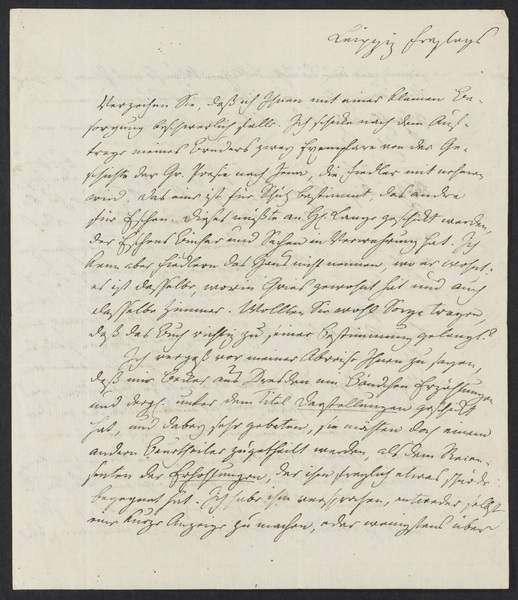 Leipzig Freytags
Verzeihen Sie, daß ich Ihnen mit einer kleinen Be-
sorgung beschwerlich falle. Ich schicke nach dem Auf-
trage meines Bruders zwey Exemplare von der Ge-
schichte der Gr. Poesie nach Jena, die Fiedler mit nehmen
wird. Das eine ist für Schütz bestimmt, das andre
für Eschen. Dieses müßte an H. Lange geschickt werden,
der Eschens Bücher und Sachen in Verwahrung hat. Ich
kann aber Fiedlern das Haus nicht nennen, wo er wohnt.
es ist dasselbe, worin Gries gewohnt hat und auch
dasselbe Zimmer. Wollten Sie wohl Sorge tragen,
daß das Buch richtig zu seiner Bestimmung gelangt?
Ich vergaß vor meiner Abreise Ihnen zu sagen,
daß mir Becker aus Dresden ein Bändchen Erzählungen
und dergl. unter dem Titel Darstellungen geschickt
hat, und dabey sehr gebeten, sie möchten doch einem
andern Beurtheiler zugetheilt werden, als dem Recen-
senten der Erhohlungen, der ihm freylich etwas schnöde
begegnet hat. Ich habe ihm versprochen, entweder selbst
eine kurze Anzeige zu machen, oder wenigstens über